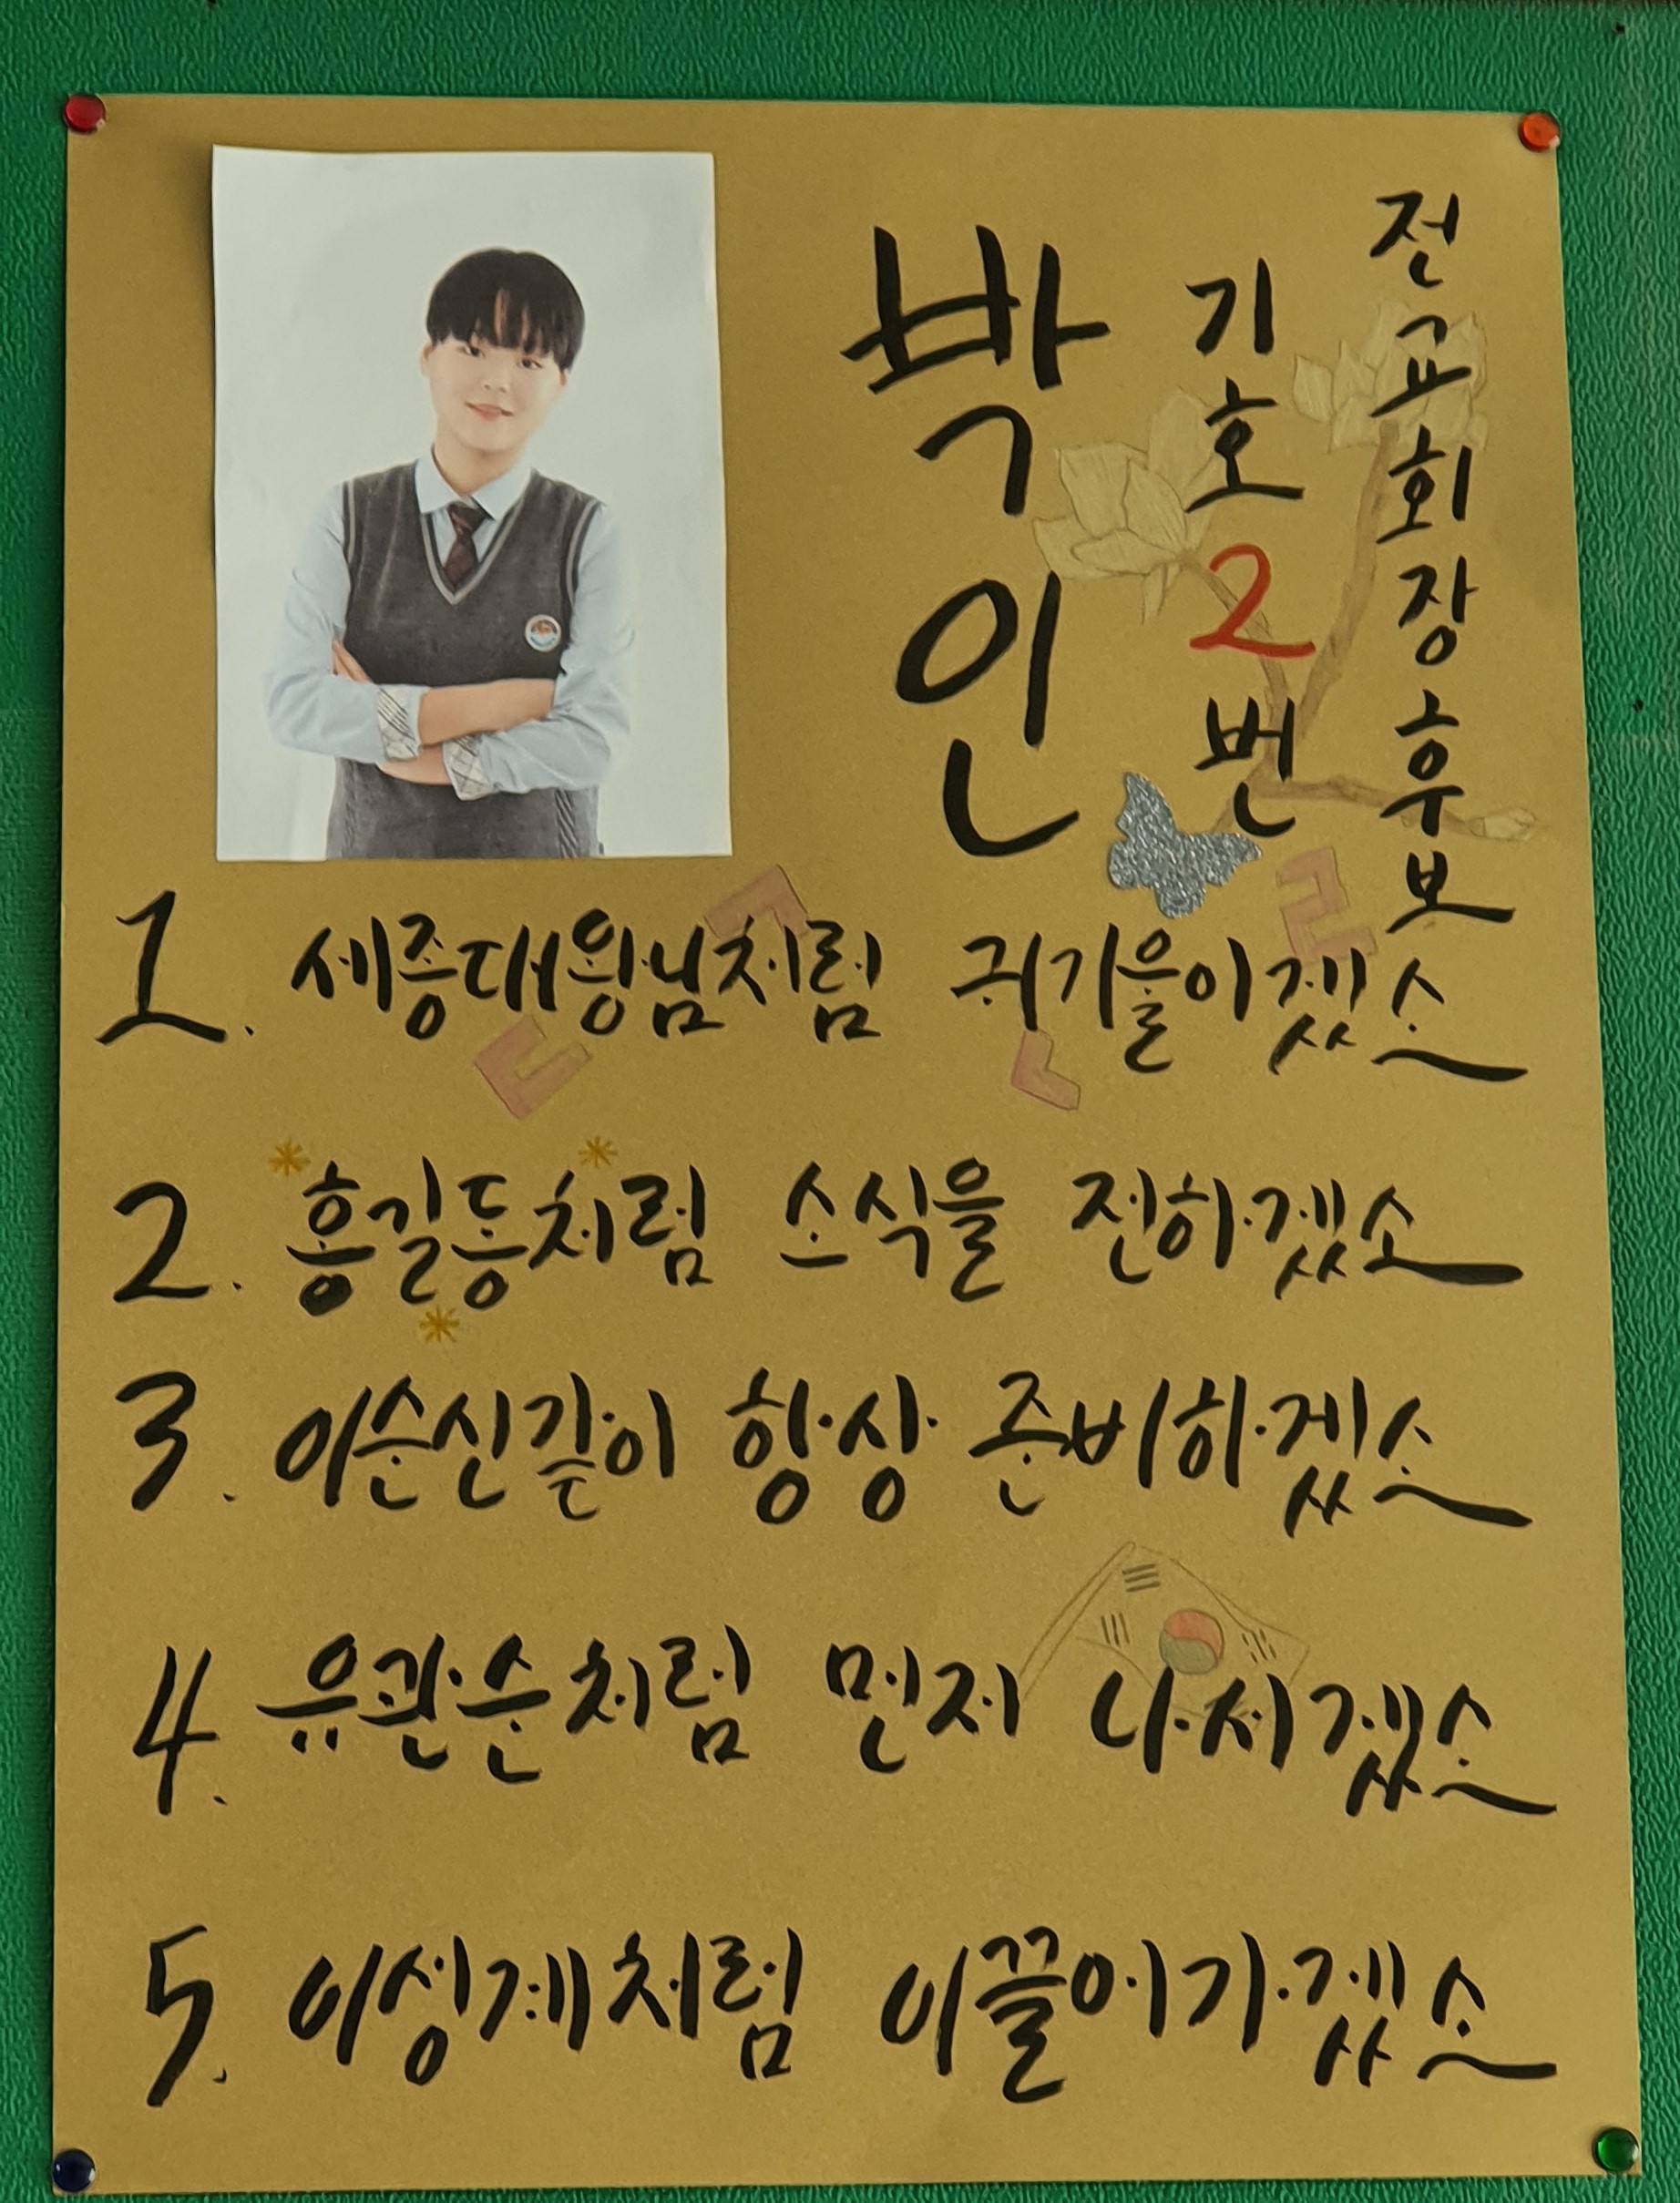 전교회장후보
기호2번
박인
1. 세종대왕님처럼 귀기울이겠소
2. 홍길동처럼 소식을 전하겠소
3. 이순신같이 항상 준비하겠소
4. 유관순처럼 먼저 나서겠소
5. 이성계처럼 이끌어가겠소